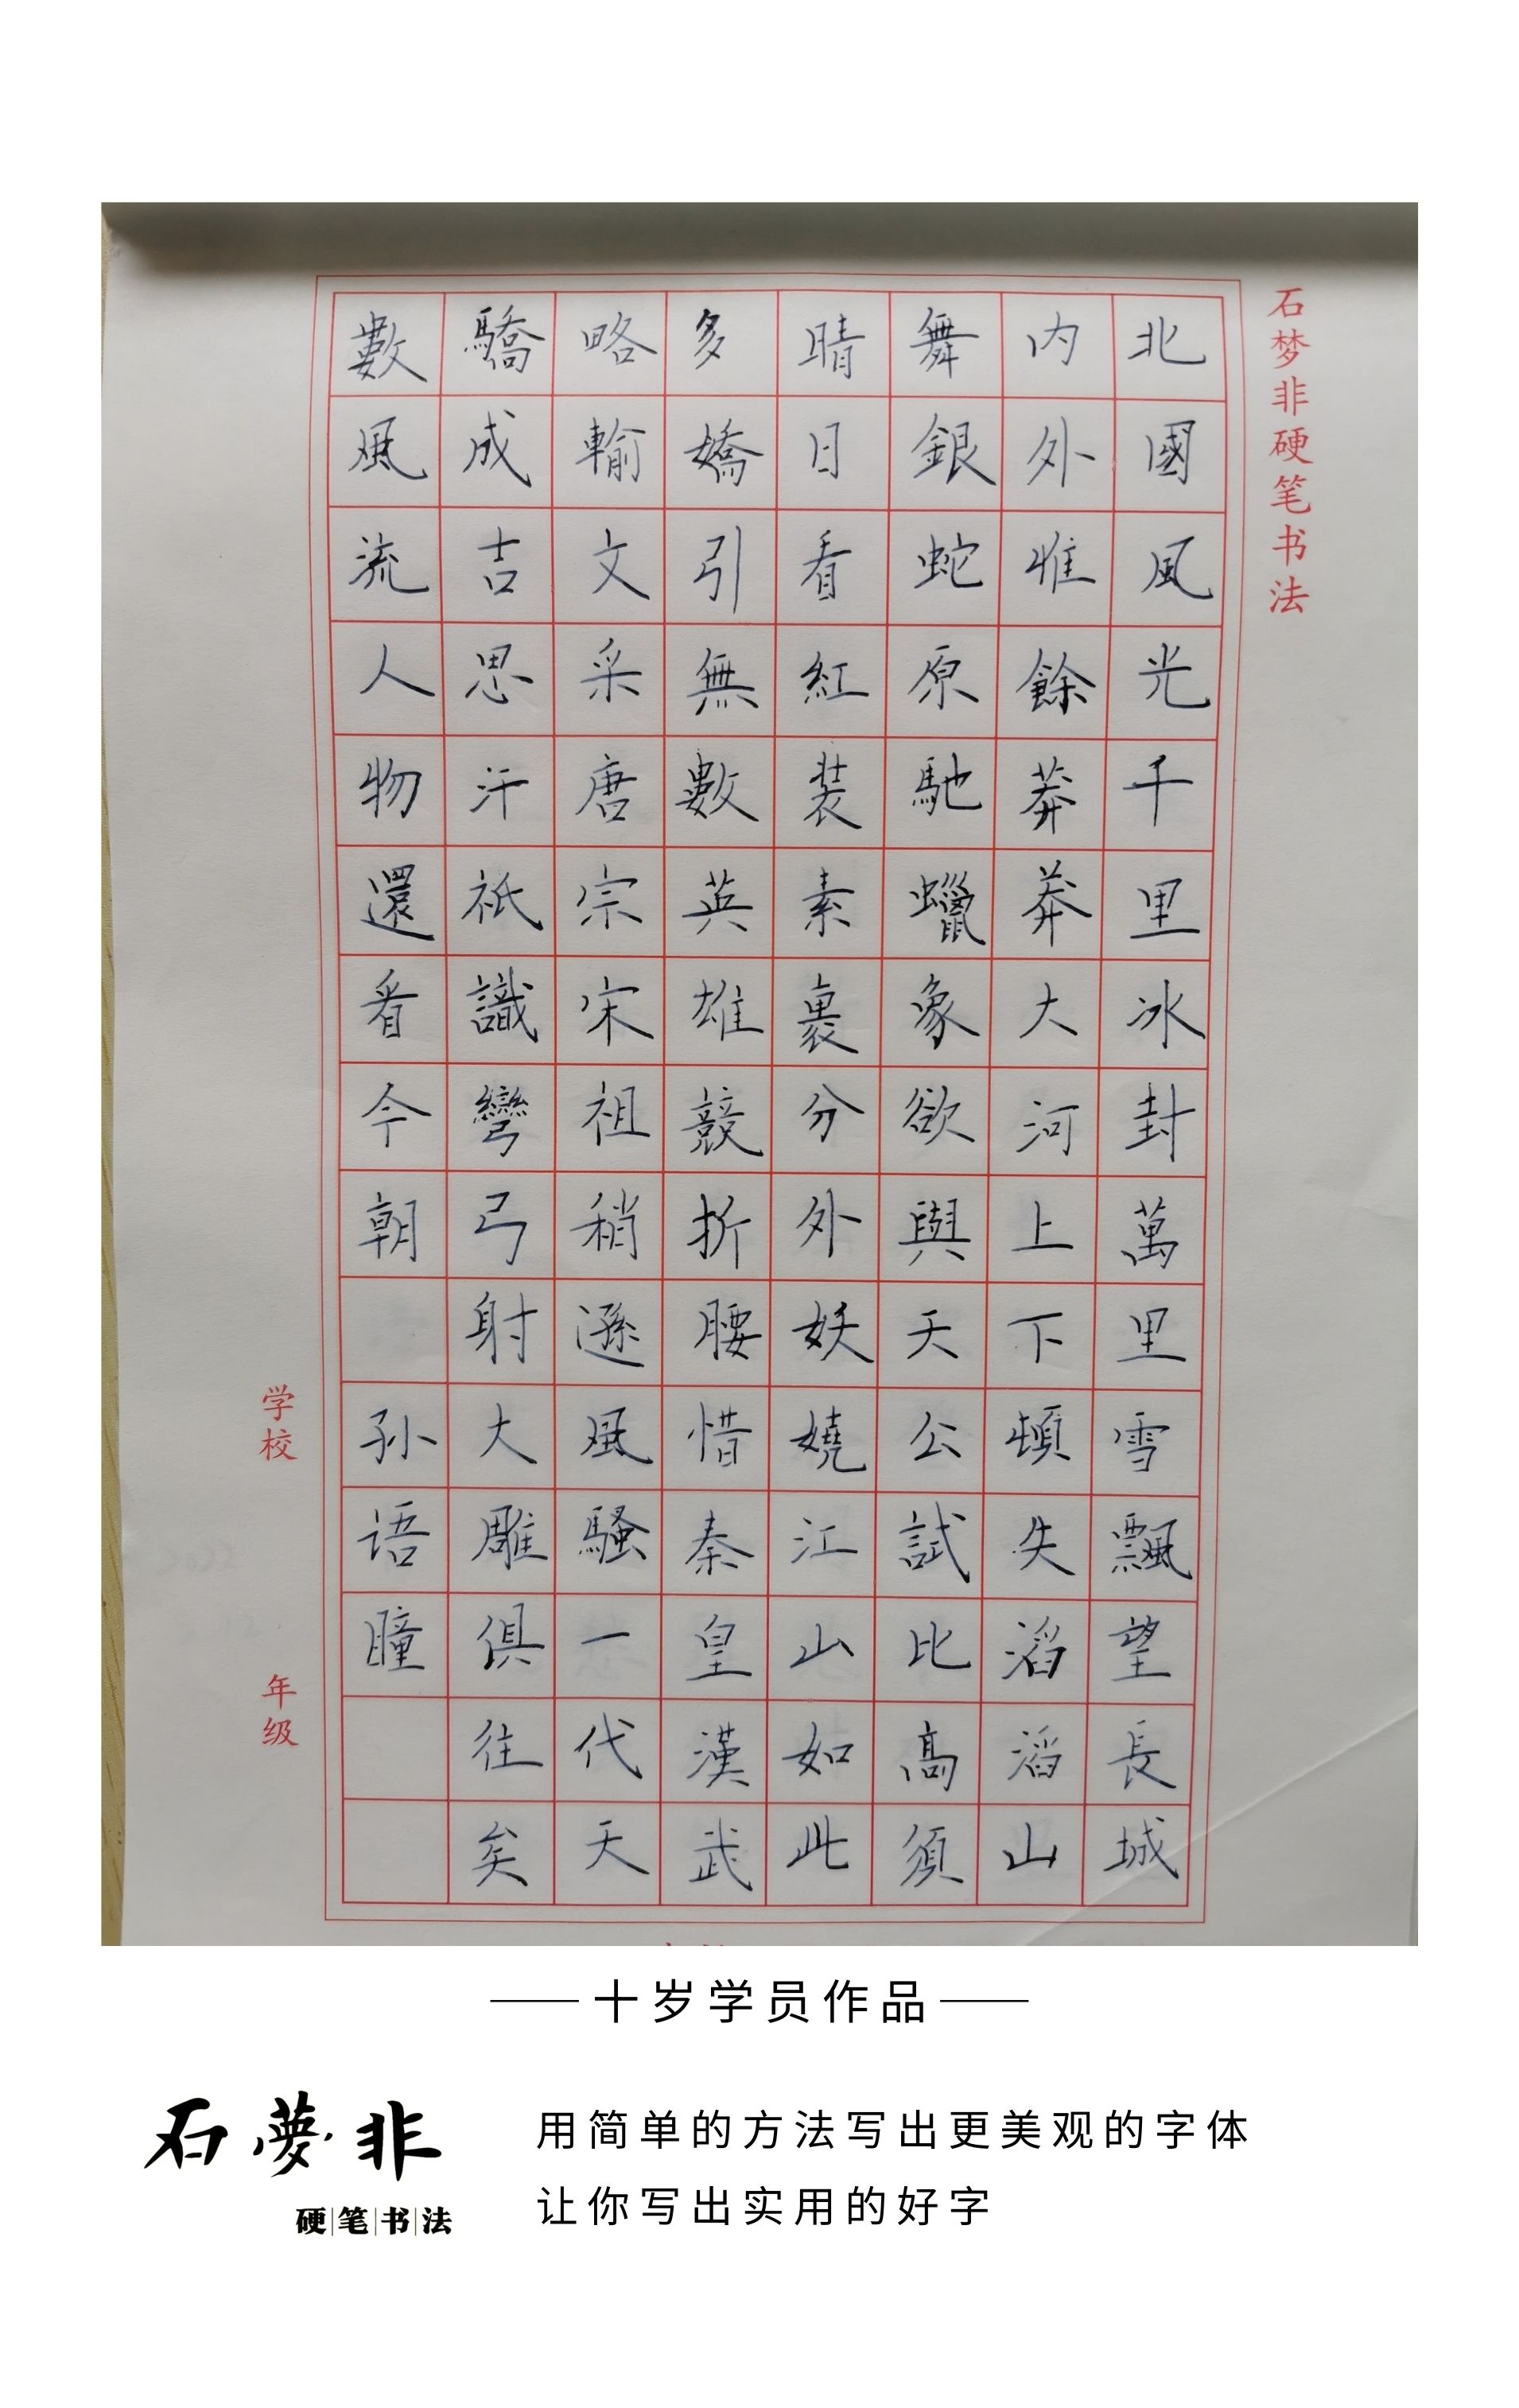 石梦非硬笔书法
北國風光千里冰封萬里雪飄望長城
内外惟餘莽莽大河上下頓失滔滔山
舞銀蛇原馳蠟象欲與天公試比高須
晴日看紅装素裹分外妖嬈江山如此
多嬌引無數英雄競折腰惜秦皇漢武
略輸文采唐宗宋祖稍遜風騷一代天
驕成吉思汗祇識彎弓射大雕俱往矣
數風流人物還看今朝 孙语瞳
学校 年级
十岁学员作品
石夢非
硬笔书法
用简单的方法写出更美观的字体
让你写出实用的好字